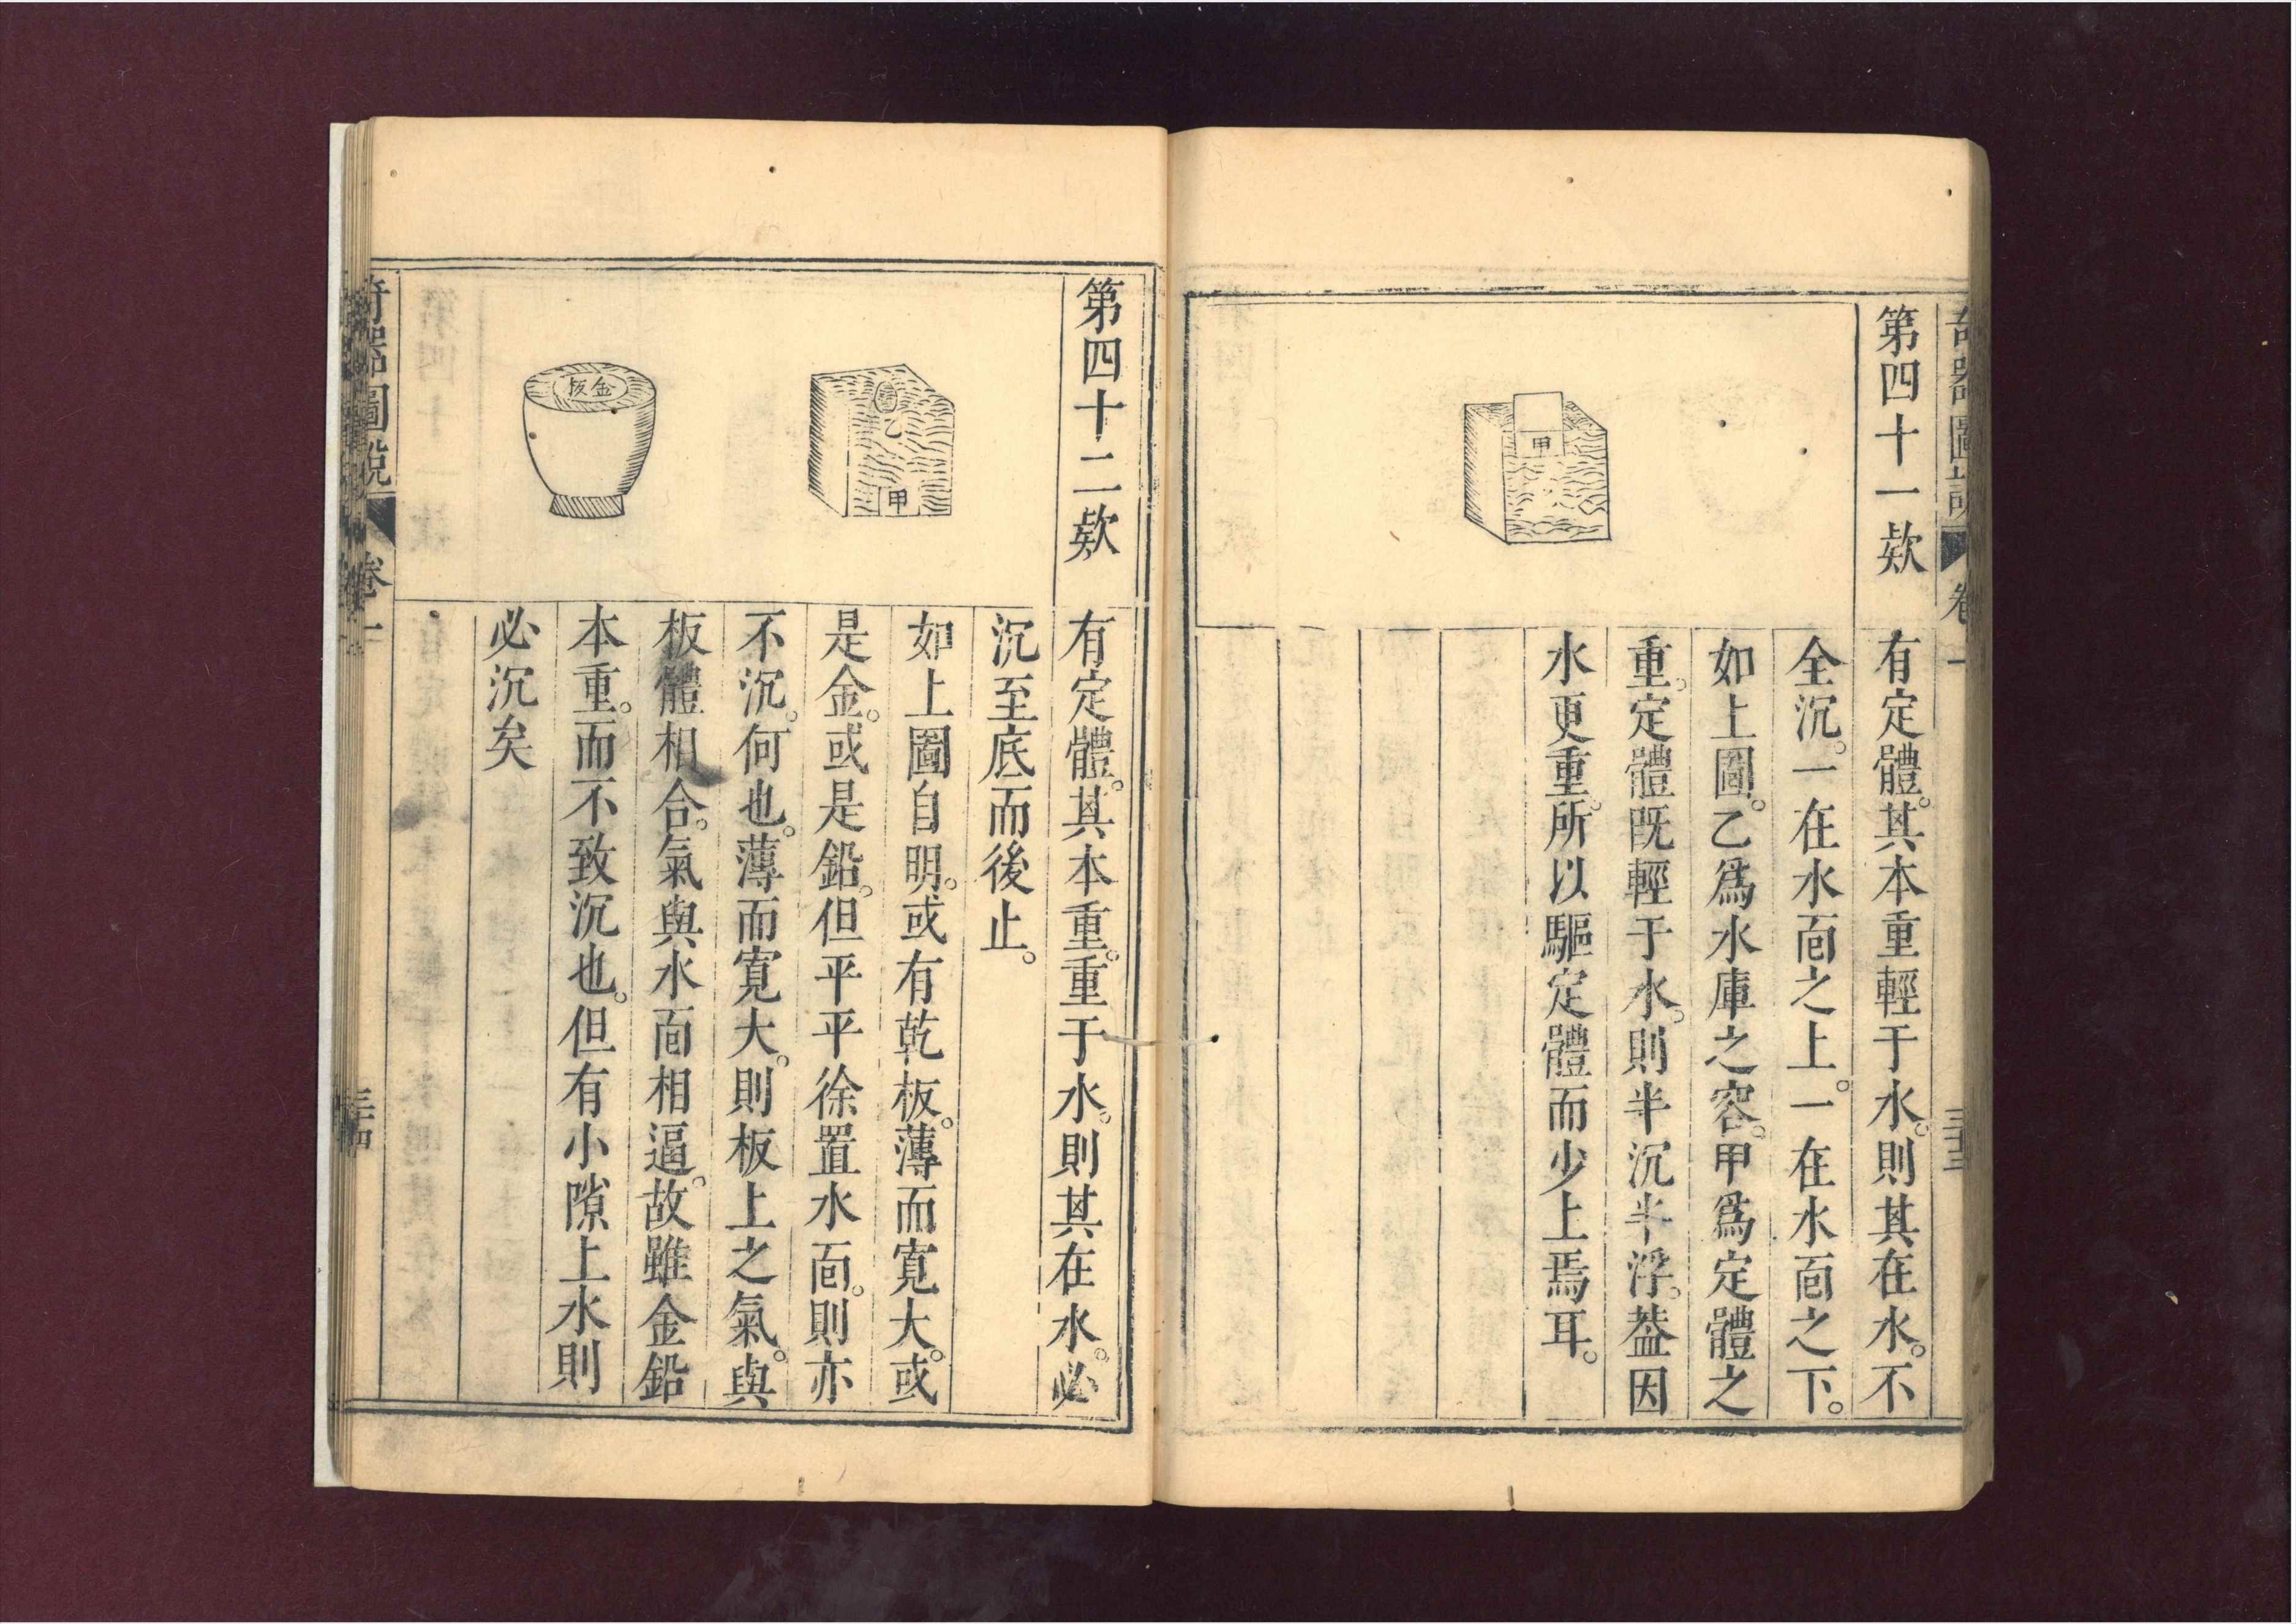 奇器圖說 卷一 三十三
第四十一欵
甲
有定體。其本重輕于水。則其在水。不
全沉。一在水面之上。一在水面之下。
如上圖。乙爲水庫之容。甲爲定體之
重。定體既輕于水。則半沉半浮。葢因
水更重。所以驅定體而少上焉耳。
第四十二欵
乙
甲
金板
有定體。其本重。重于水。則其在水。必
沉至底而後止。
如上圖自明。或有乾板。薄而寬大。或
是金。或是鉛。但平平徐置水面。則亦
不沉。何也。薄而寬大。則板上之氣。與
板體相合。氣與水面相逼。故雖金鉛
本重。而不致沉也。但有小隙上水則
必沉矣
奇器圖說 卷一 三十四